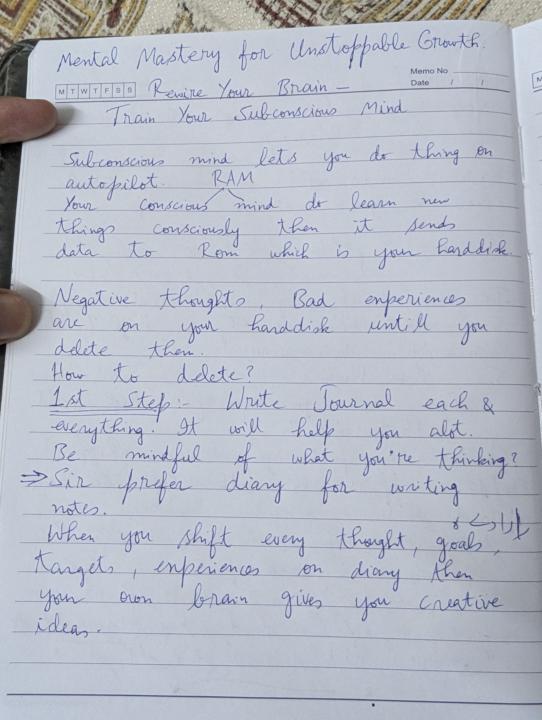 Mental Mastery for Unstoppable Growth.
Memo No
M T W T F S S Rewire Your Brain —
Date / /
Train Your Subconscious Mind
Subconscious mind lets you do thing on
autopilot. RAM
Your conscious mind do learn new
things consciously then it sends
data to Rom which is your harddisk.
Negative thoughts, Bad experiences
are on your harddisk untill you
delete them.
How to delete?
1st Step:- Write Journal each &
everything. It will help you alot.
Be mindful of what you're thinking?
⇒ Sir prefer diary for writing
notes.
When you shift every thought, goals,
targets, experiences on diary then
your own brain gives you creative
ideas.